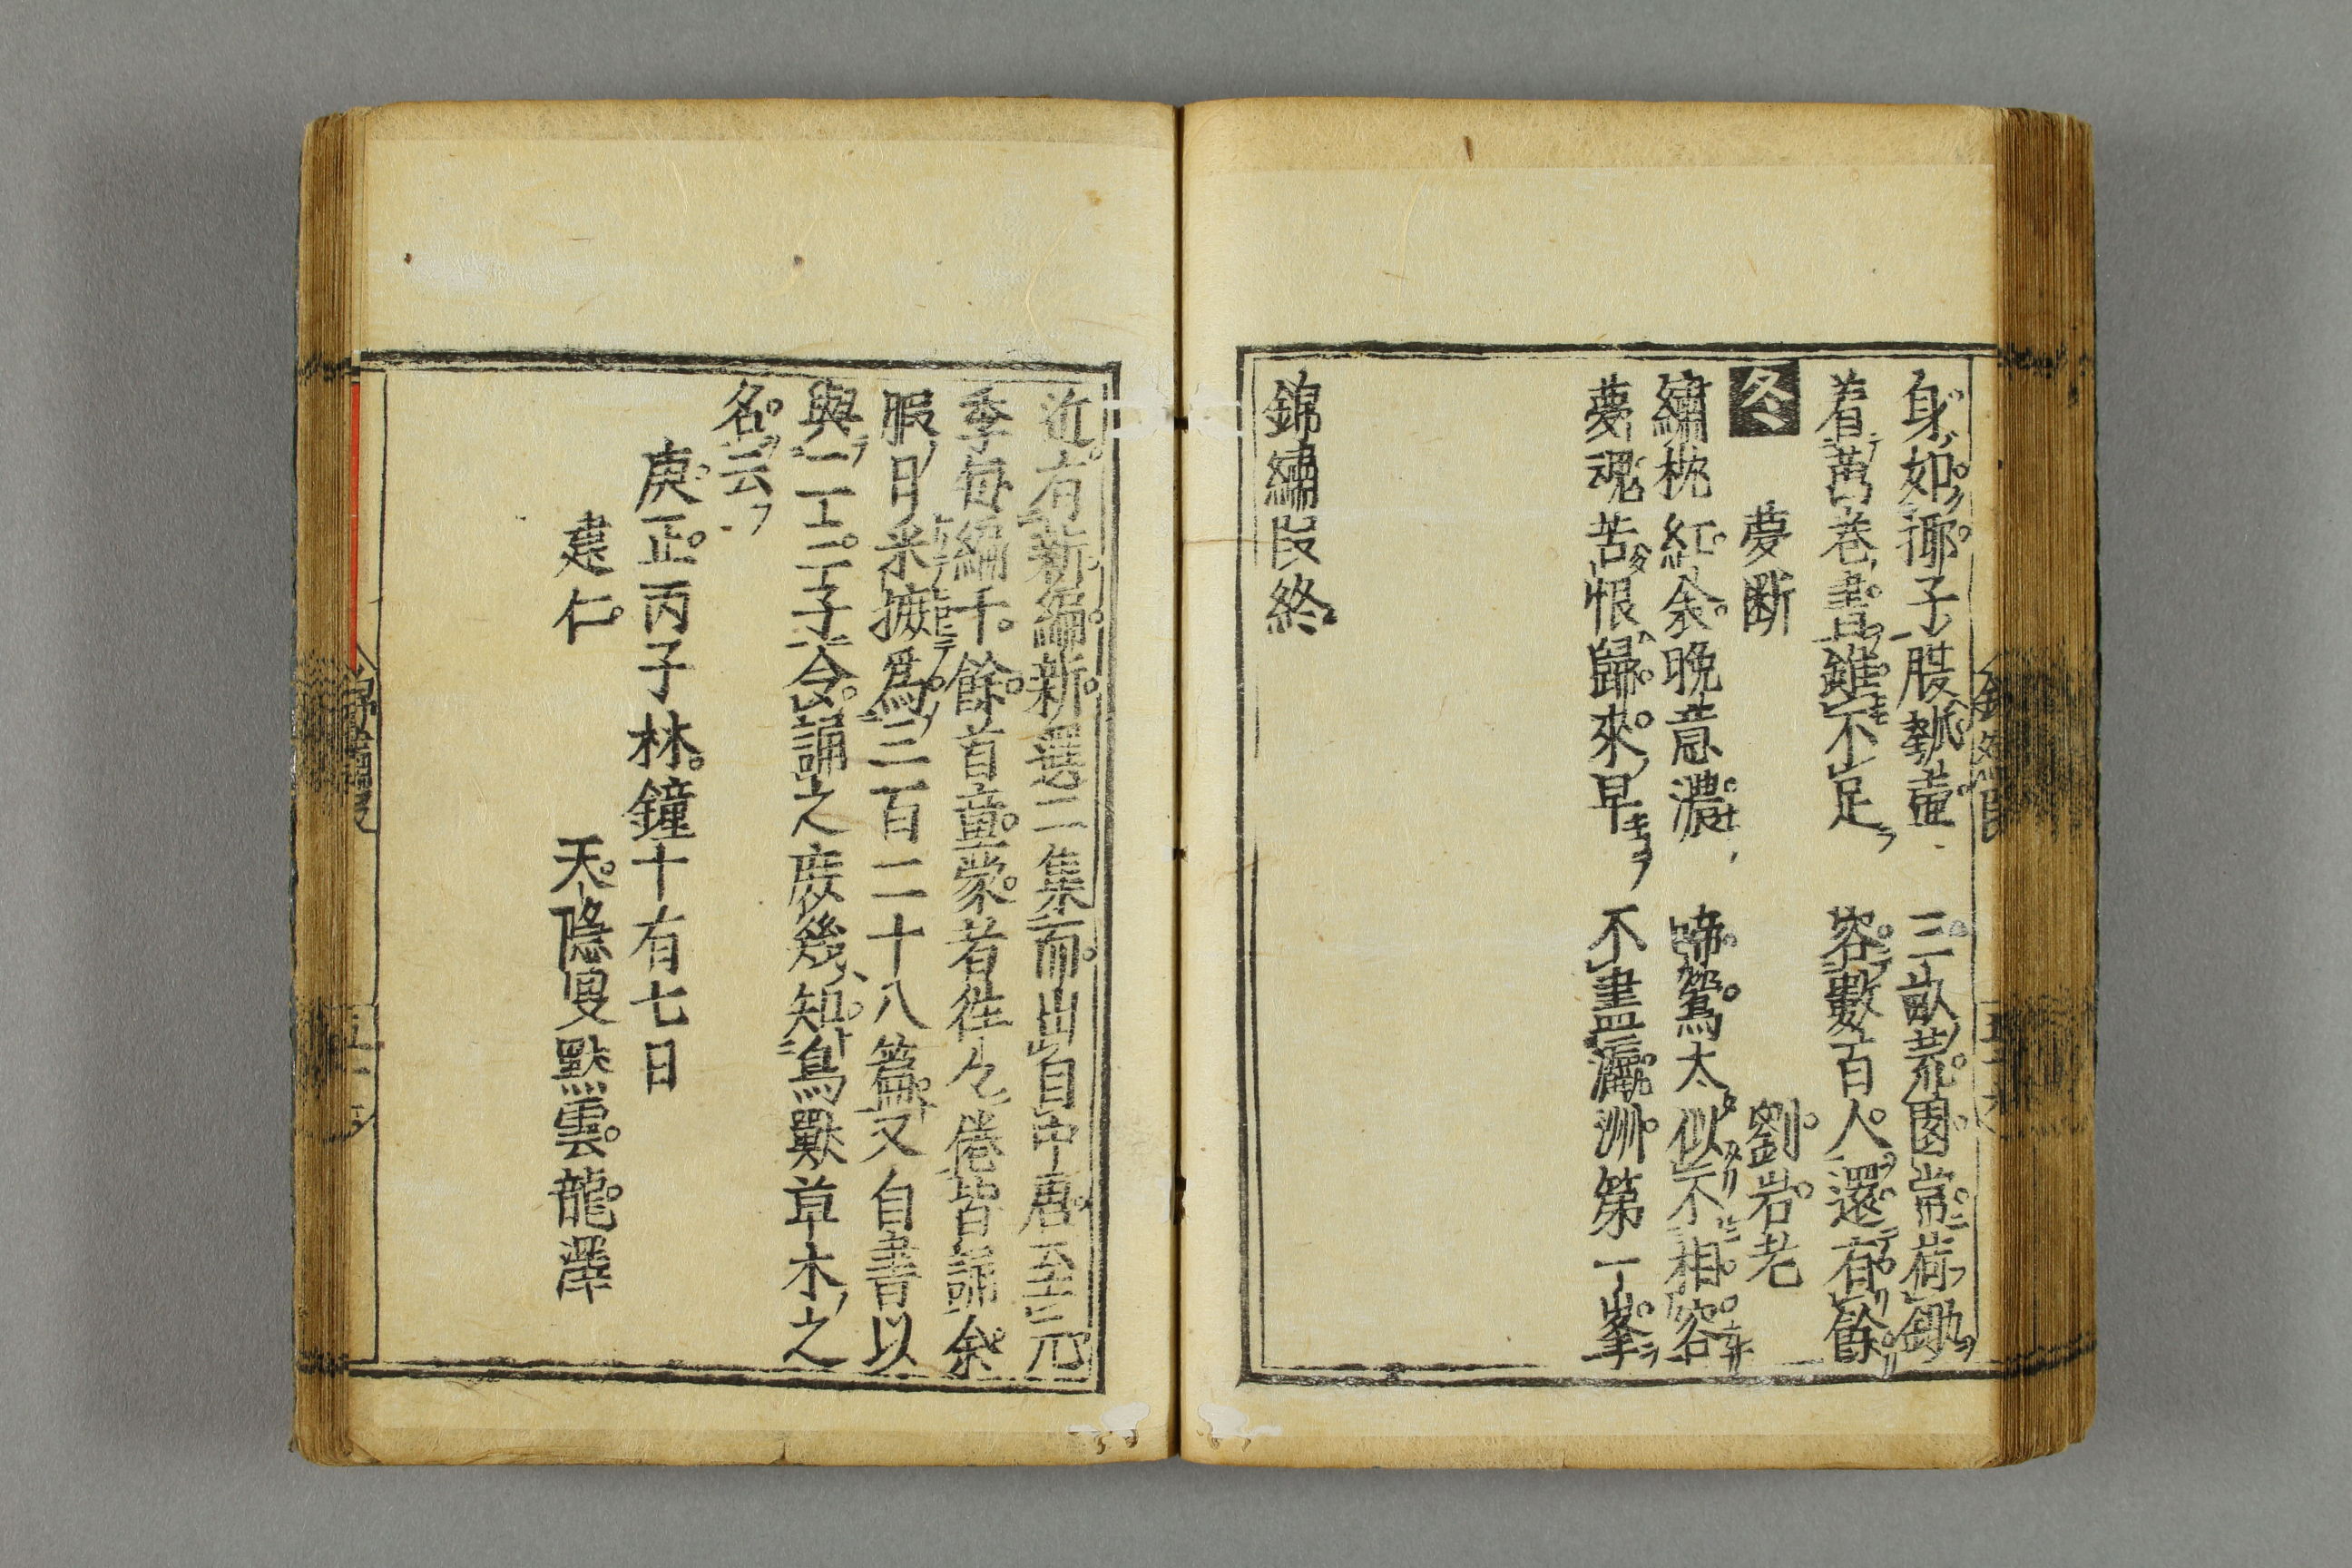 身如揶子股執壺　三畝荒園常荷鋤
着萬巻書雖不足　容數百人還有餘
冬　夢断　劉岩老
繡枕紅余晩意濃　啼鴬太似不相容
夢魂苦恨歸來早　不盡瀛洲第一峯
錦繡段終
近有新編新選二集而出自中唐至元
季毎編千餘首童蒙者往々倦背誦余
暇日采摭爲三百二十八篇又自書以
與二三子令誦之庶幾知鳥獸草木之
名云
庚正丙子林鐘十有七日
建仁　天隱叟默雲龍澤